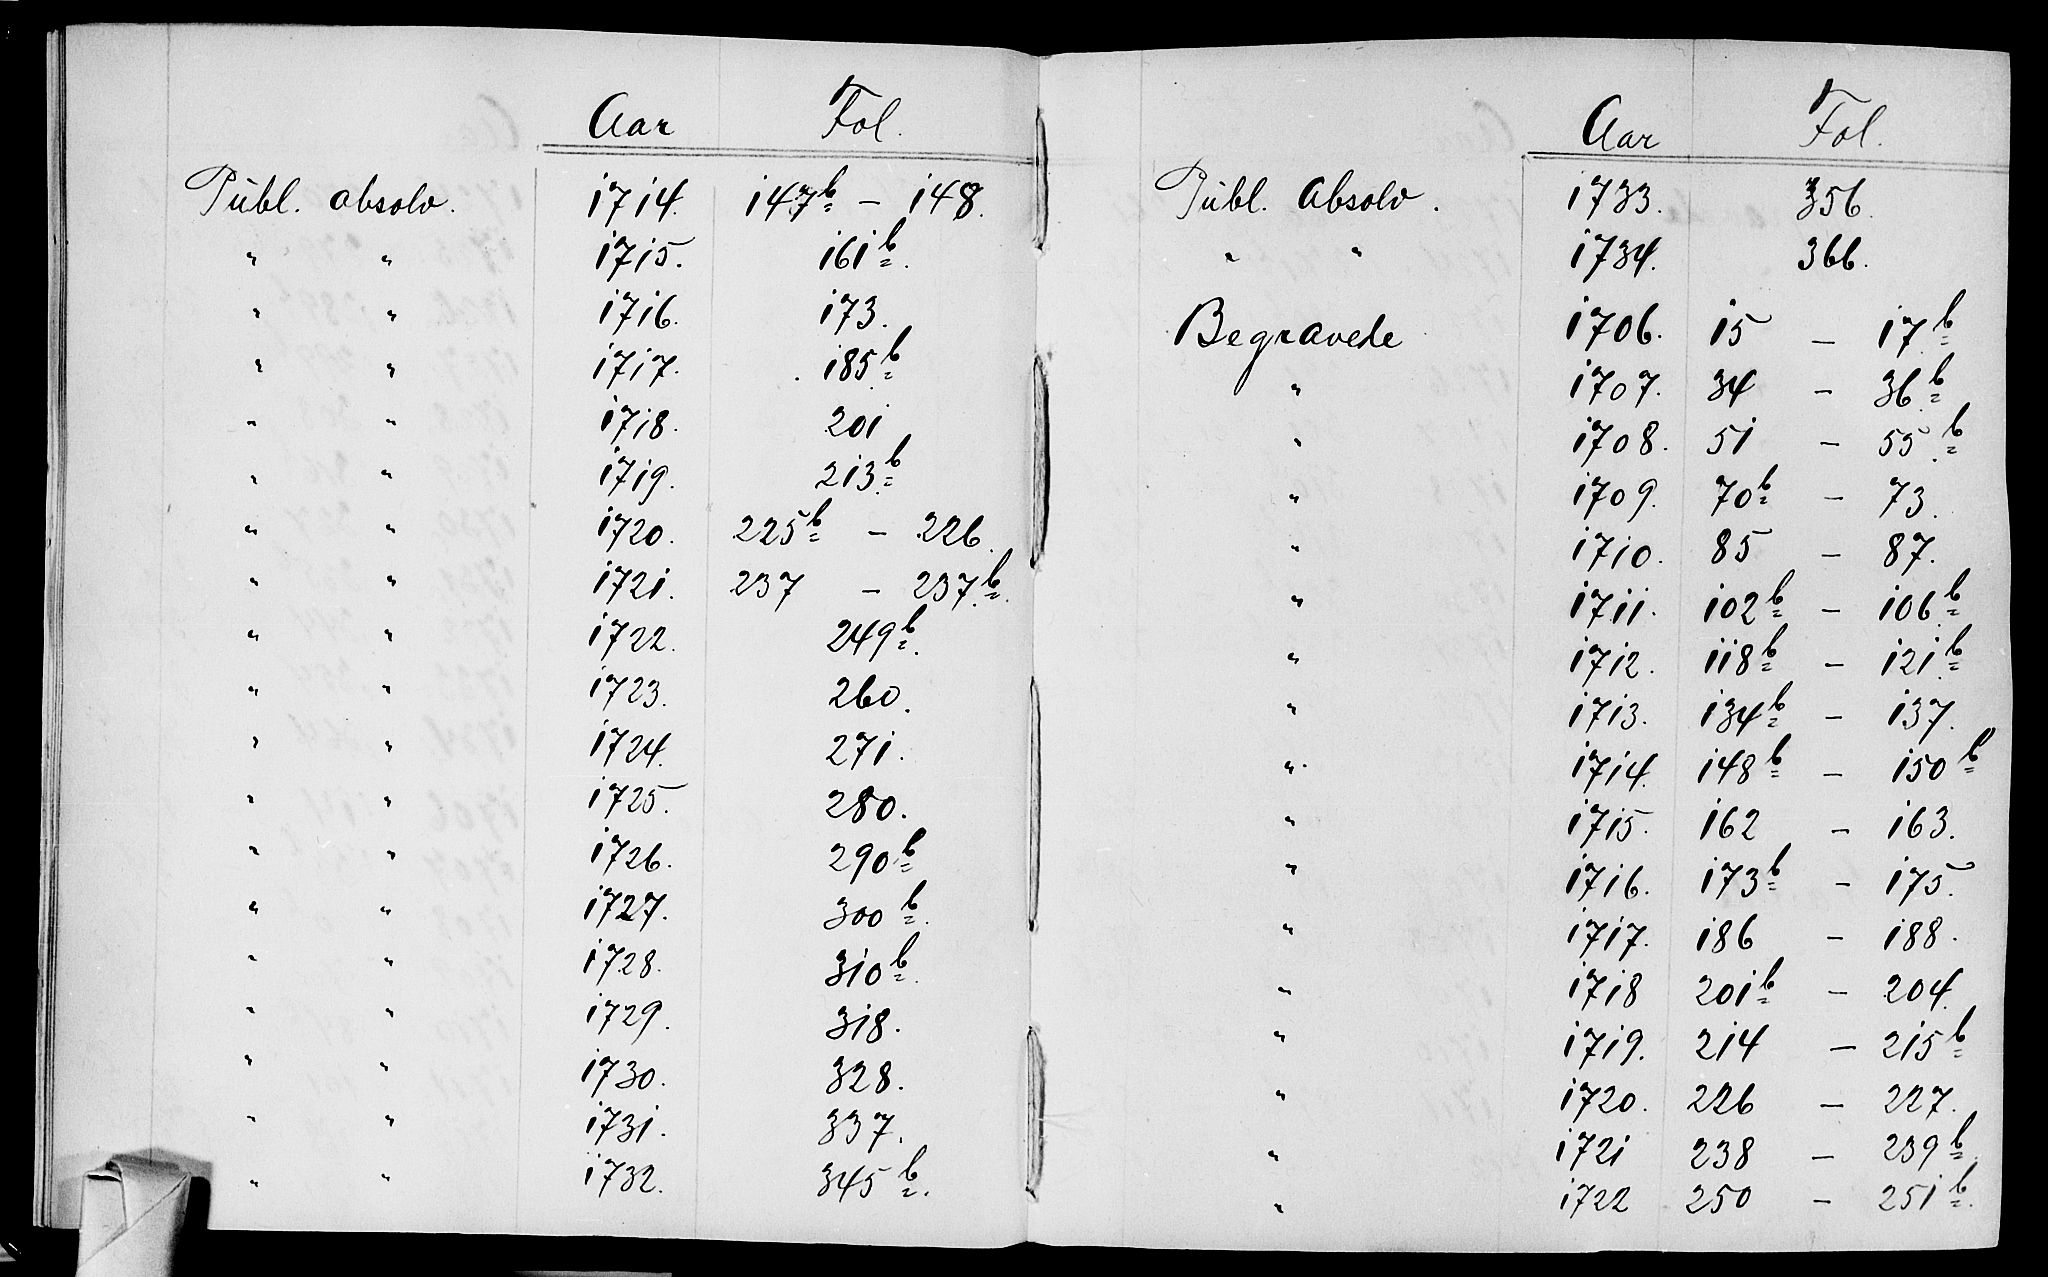 Aar Fol.
Publ. absolv. 1714. 147b – 148.
" " 1715. 161b.
" " 1716. 173.
" " 1717. 185b
" " 1718. 201
" " 1719. 213b
" " 1720. 225b – 226.
" " 1721. 237 – 237b.
" " 1722. 249b.
" " 1723. 260.
" " 1724. 271.
" " 1725. 280.
" " 1726. 290b
" " 1727. 300b.
" " 1728. 310b.
" " 1729. 318.
" " 1730. 328.
" " 1731. 337.
" " 1732. 345b.
Aar Fol.
Publ. Absolv. 1733. 356.
" " 1734. 366.
Begravede 1706. 15 – 17b
" 1707. 34 – 36b
" 1708. 51 – 55b
" 1709. 70b – 73.
" 1710. 85 – 87.
" 1711. 102b – 106b
" 1712. 118b – 121b
" 1713. 134b – 137.
" 1714. 148b – 150b
" 1715. 162 – 163.
" 1716. 173b – 175.
" 1717. 186 – 188.
" 1718 201b – 204.
" 1719. 214 – 215b
" 1720. 226 – 227.
" 1721 238 – 239b.
" 1722 250 – 251b.